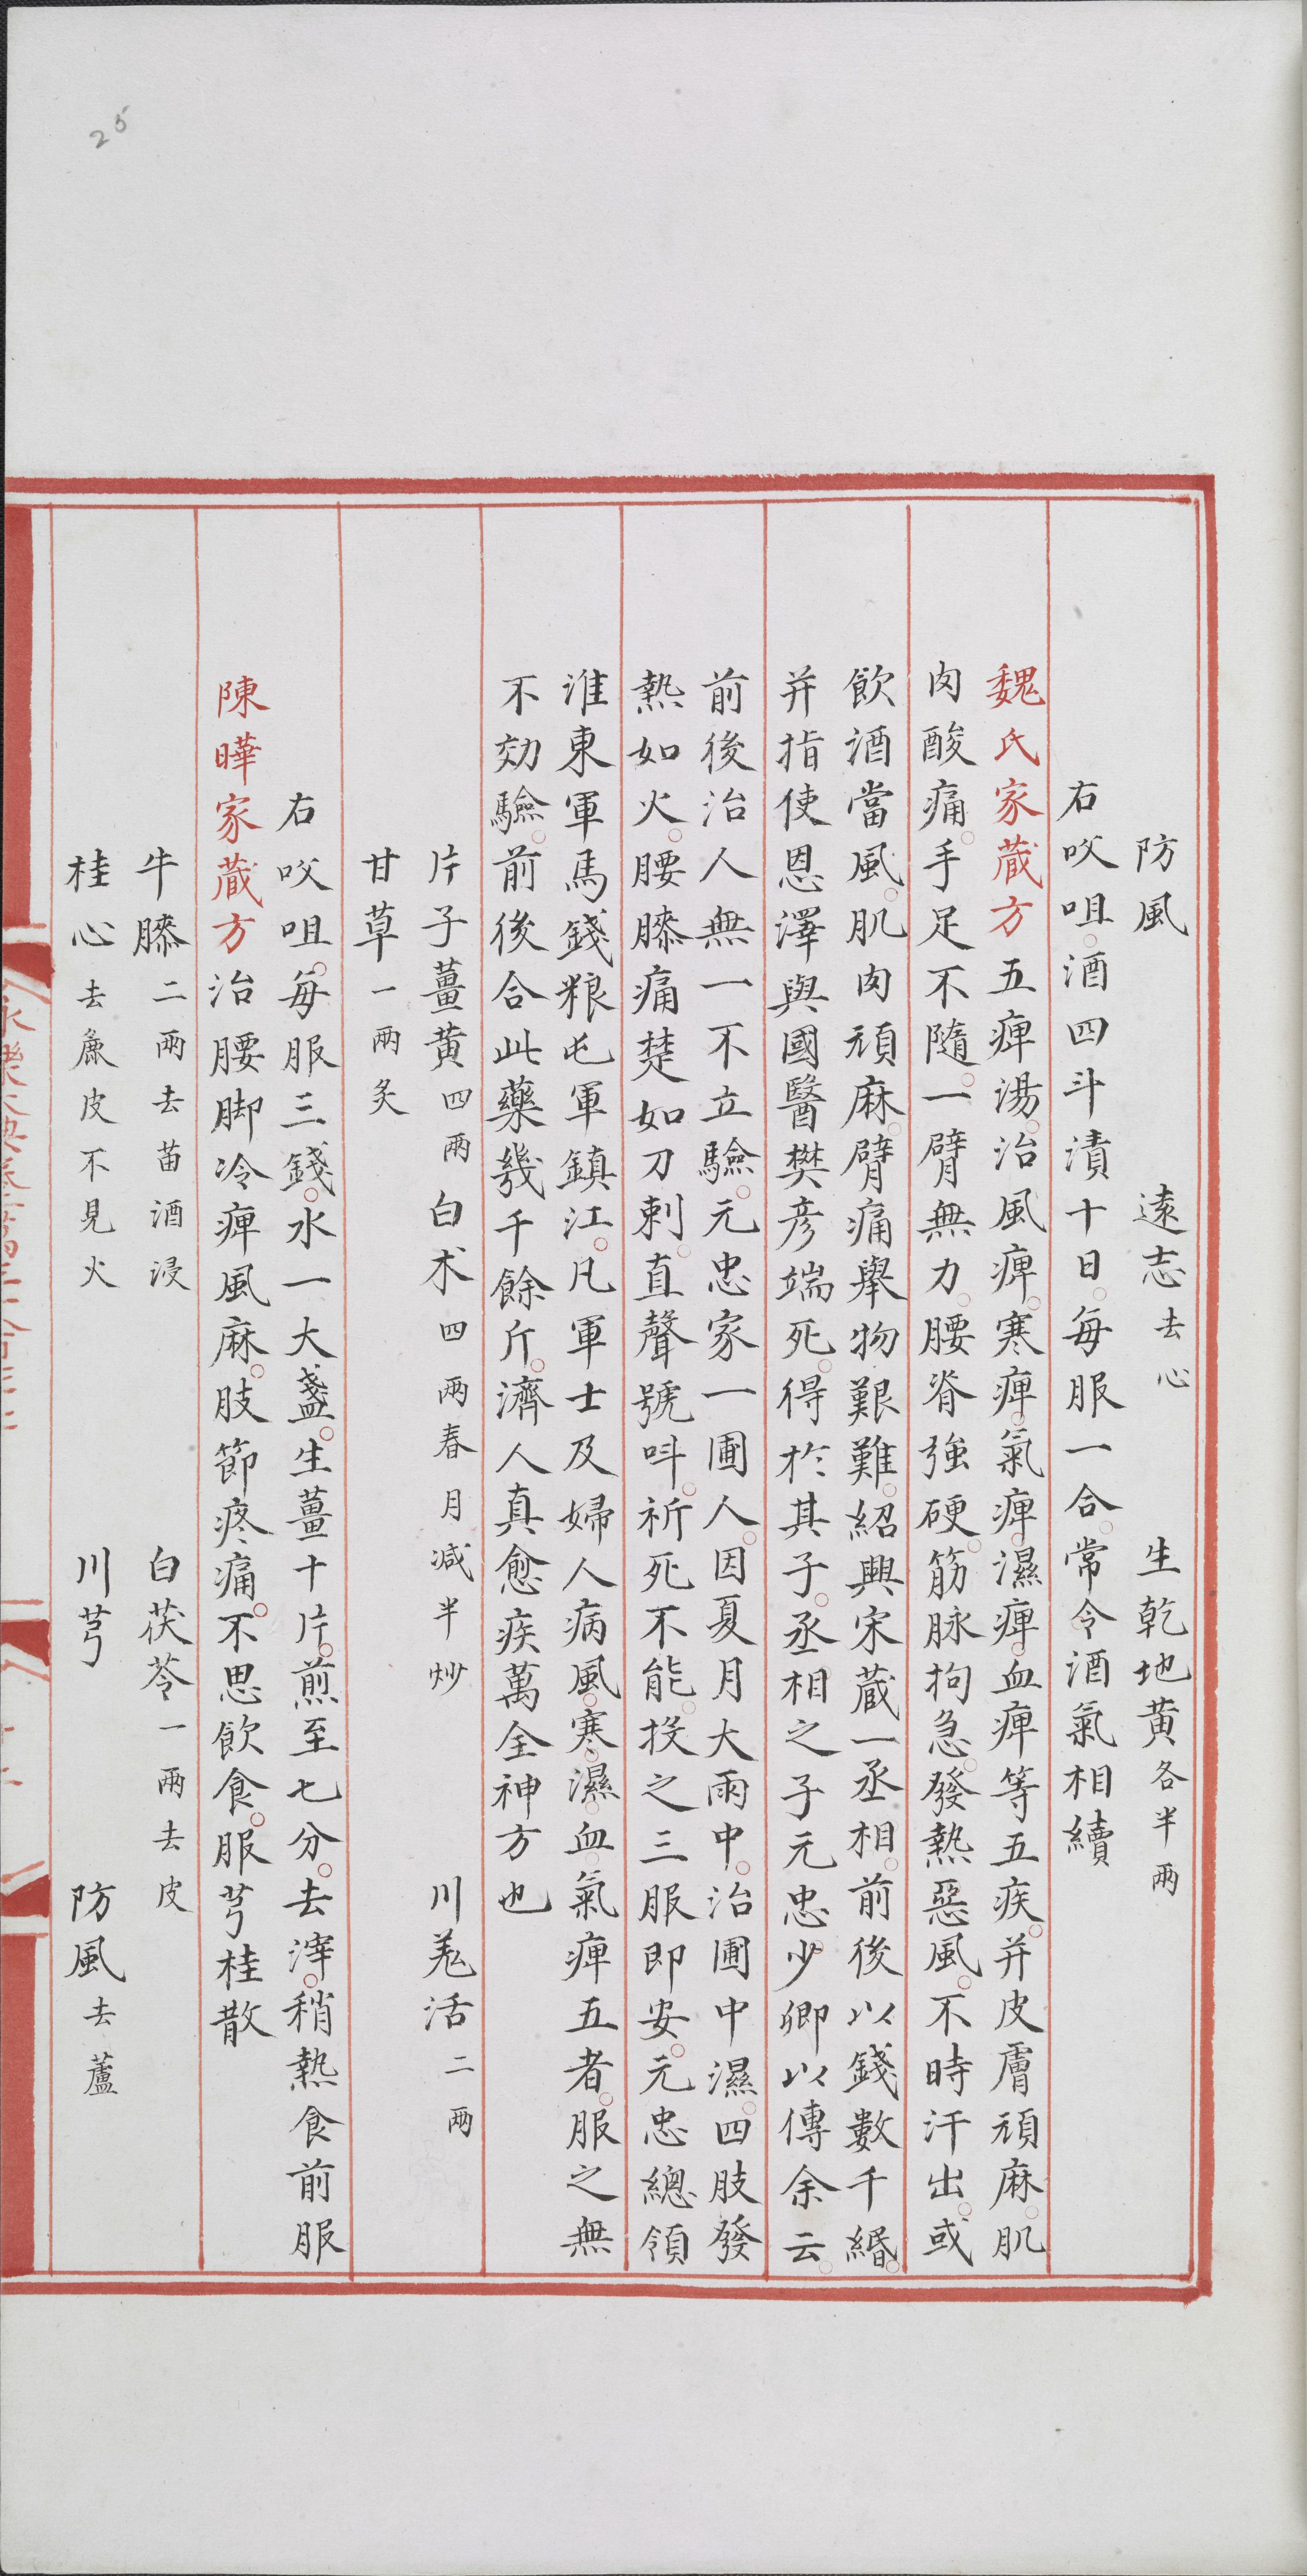 25
防風　遠志去心　生乾地黄各半兩
右㕮咀。酒四斗漬十日。每服一合。常令酒氣相續
魏氏家蔵方五痺湯。治風痺。寒痺。氣痺。濕痺。血痺等五疾。并皮膚頑麻。肌
肉酸痛。手足不隨。一臂無力。腰脊強硬。筋脉拘急。發熱惡風。不時汗出。或
飲酒當風。肌肉頑麻。臂痛舉物艱難。紹興宋蔵一丞相。前後以錢數千緡。
并指使恩澤與國醫樊彦端死。得於其子。丞相之子元忠少卿以傳余云。
前後治人無一不立驗。元忠家一圃人。因夏月大雨中。治圃中濕。四肢發
熱如火。腰膝痛楚如刀刺。直聲號呌。祈死不能。投之三服即安。元忠總領
淮東軍馬錢粮屯軍鎮江。凡軍士及婦人病風。寒。濕。血。氣痺五者。服之無
不効驗。前後合此藥幾千餘斤。濟人真愈疾萬全神方也
片子薑黄四兩　白术四兩春月减半炒　川羌活二兩
甘草一兩炙
右㕮咀。每服三錢。水一大盞。生薑十片。煎至七分。去滓。稍熱食前服
陳曄家蔵方治腰脚冷痺風麻。肢節疼痛。不思飲食。服芎桂散
牛膝二兩去苗酒浸　白茯苓一兩去皮
桂心去麁皮不見火　川芎　防風去蘆